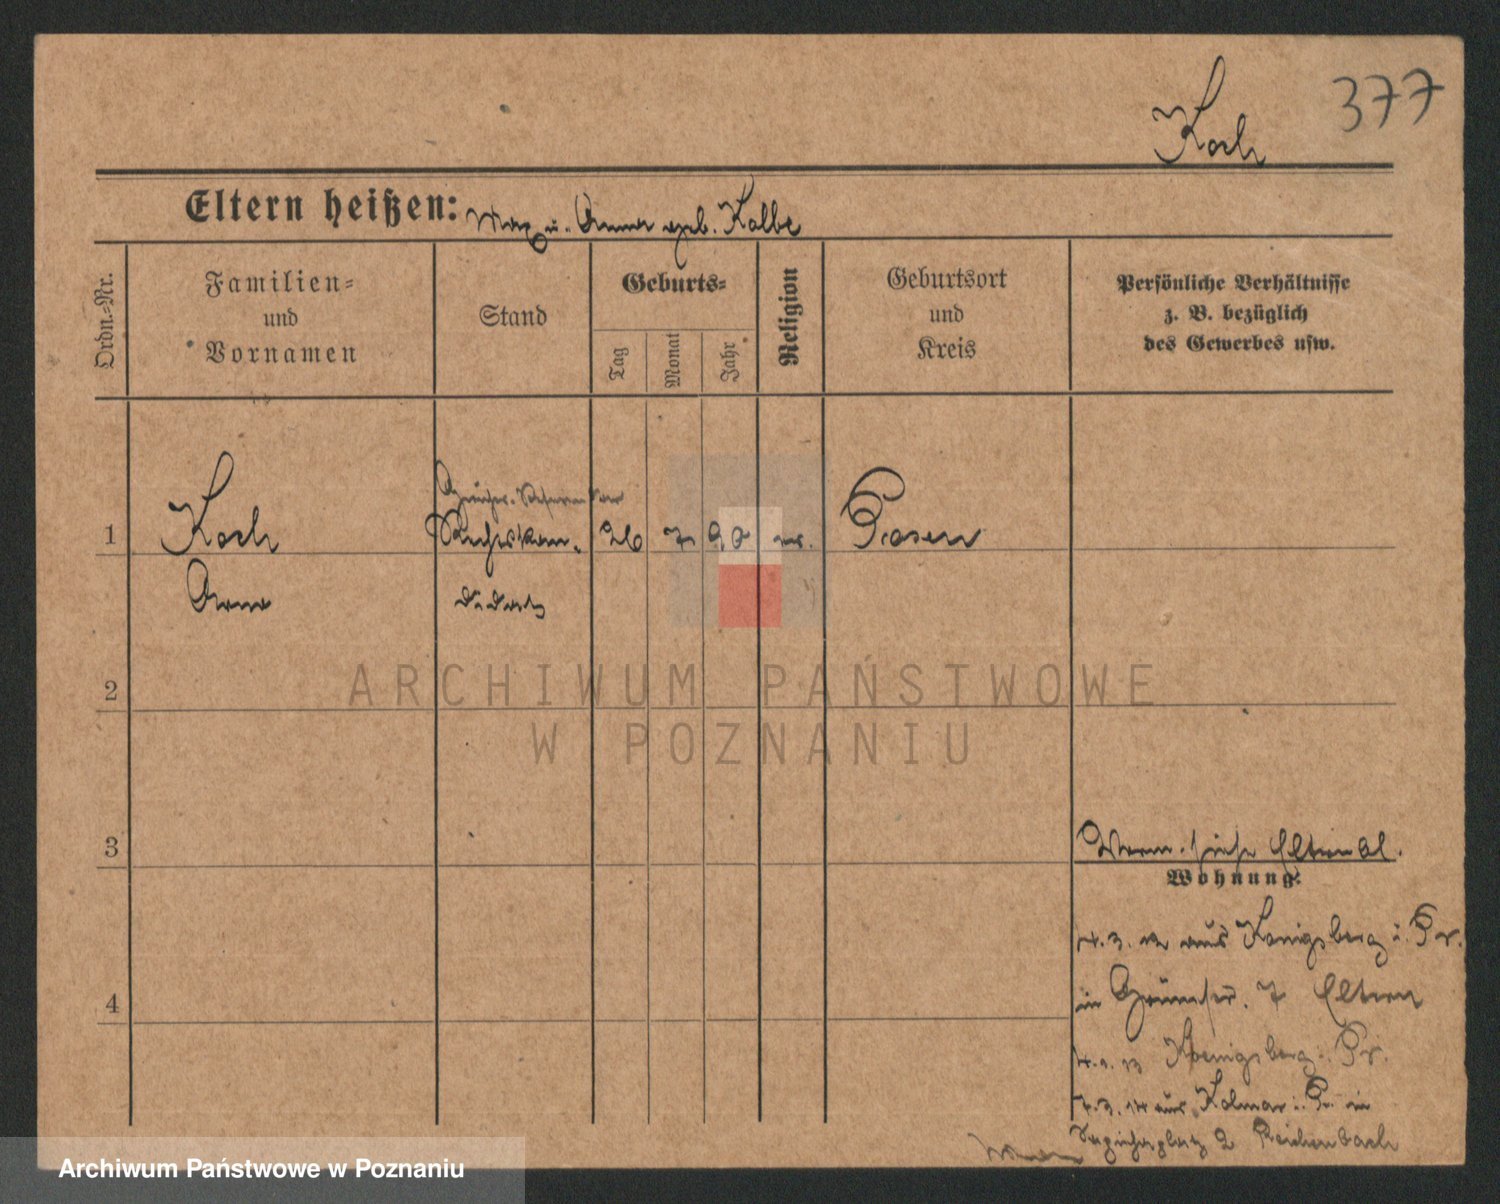 377
Koch
Eltern heißen: Max u. Anna geb. Kolbe
Ordn.=Nr.
Familien=
und
Vornamen
Stand
Geburts=
Tag
Monat
Jahr
Religion
Geburtsort
und
Kreis
Persönliche Verhältnisse
z. B. bezüglich
des Gewerbes usw.
1 Koch Rechtskan. 26 7 90 Posen
didat
2
3
4
siehe Elternbl.
Wohnung:
aus Königsberg i. Pr.
in 7 Eltern
Koenigsberg i. Pr.
aus Kolmar i. P. in
2 Reichenbach
ARCHIWUM PAŃSTWOWE
W POZNANIU
Archiwum Państwowe w Poznaniu